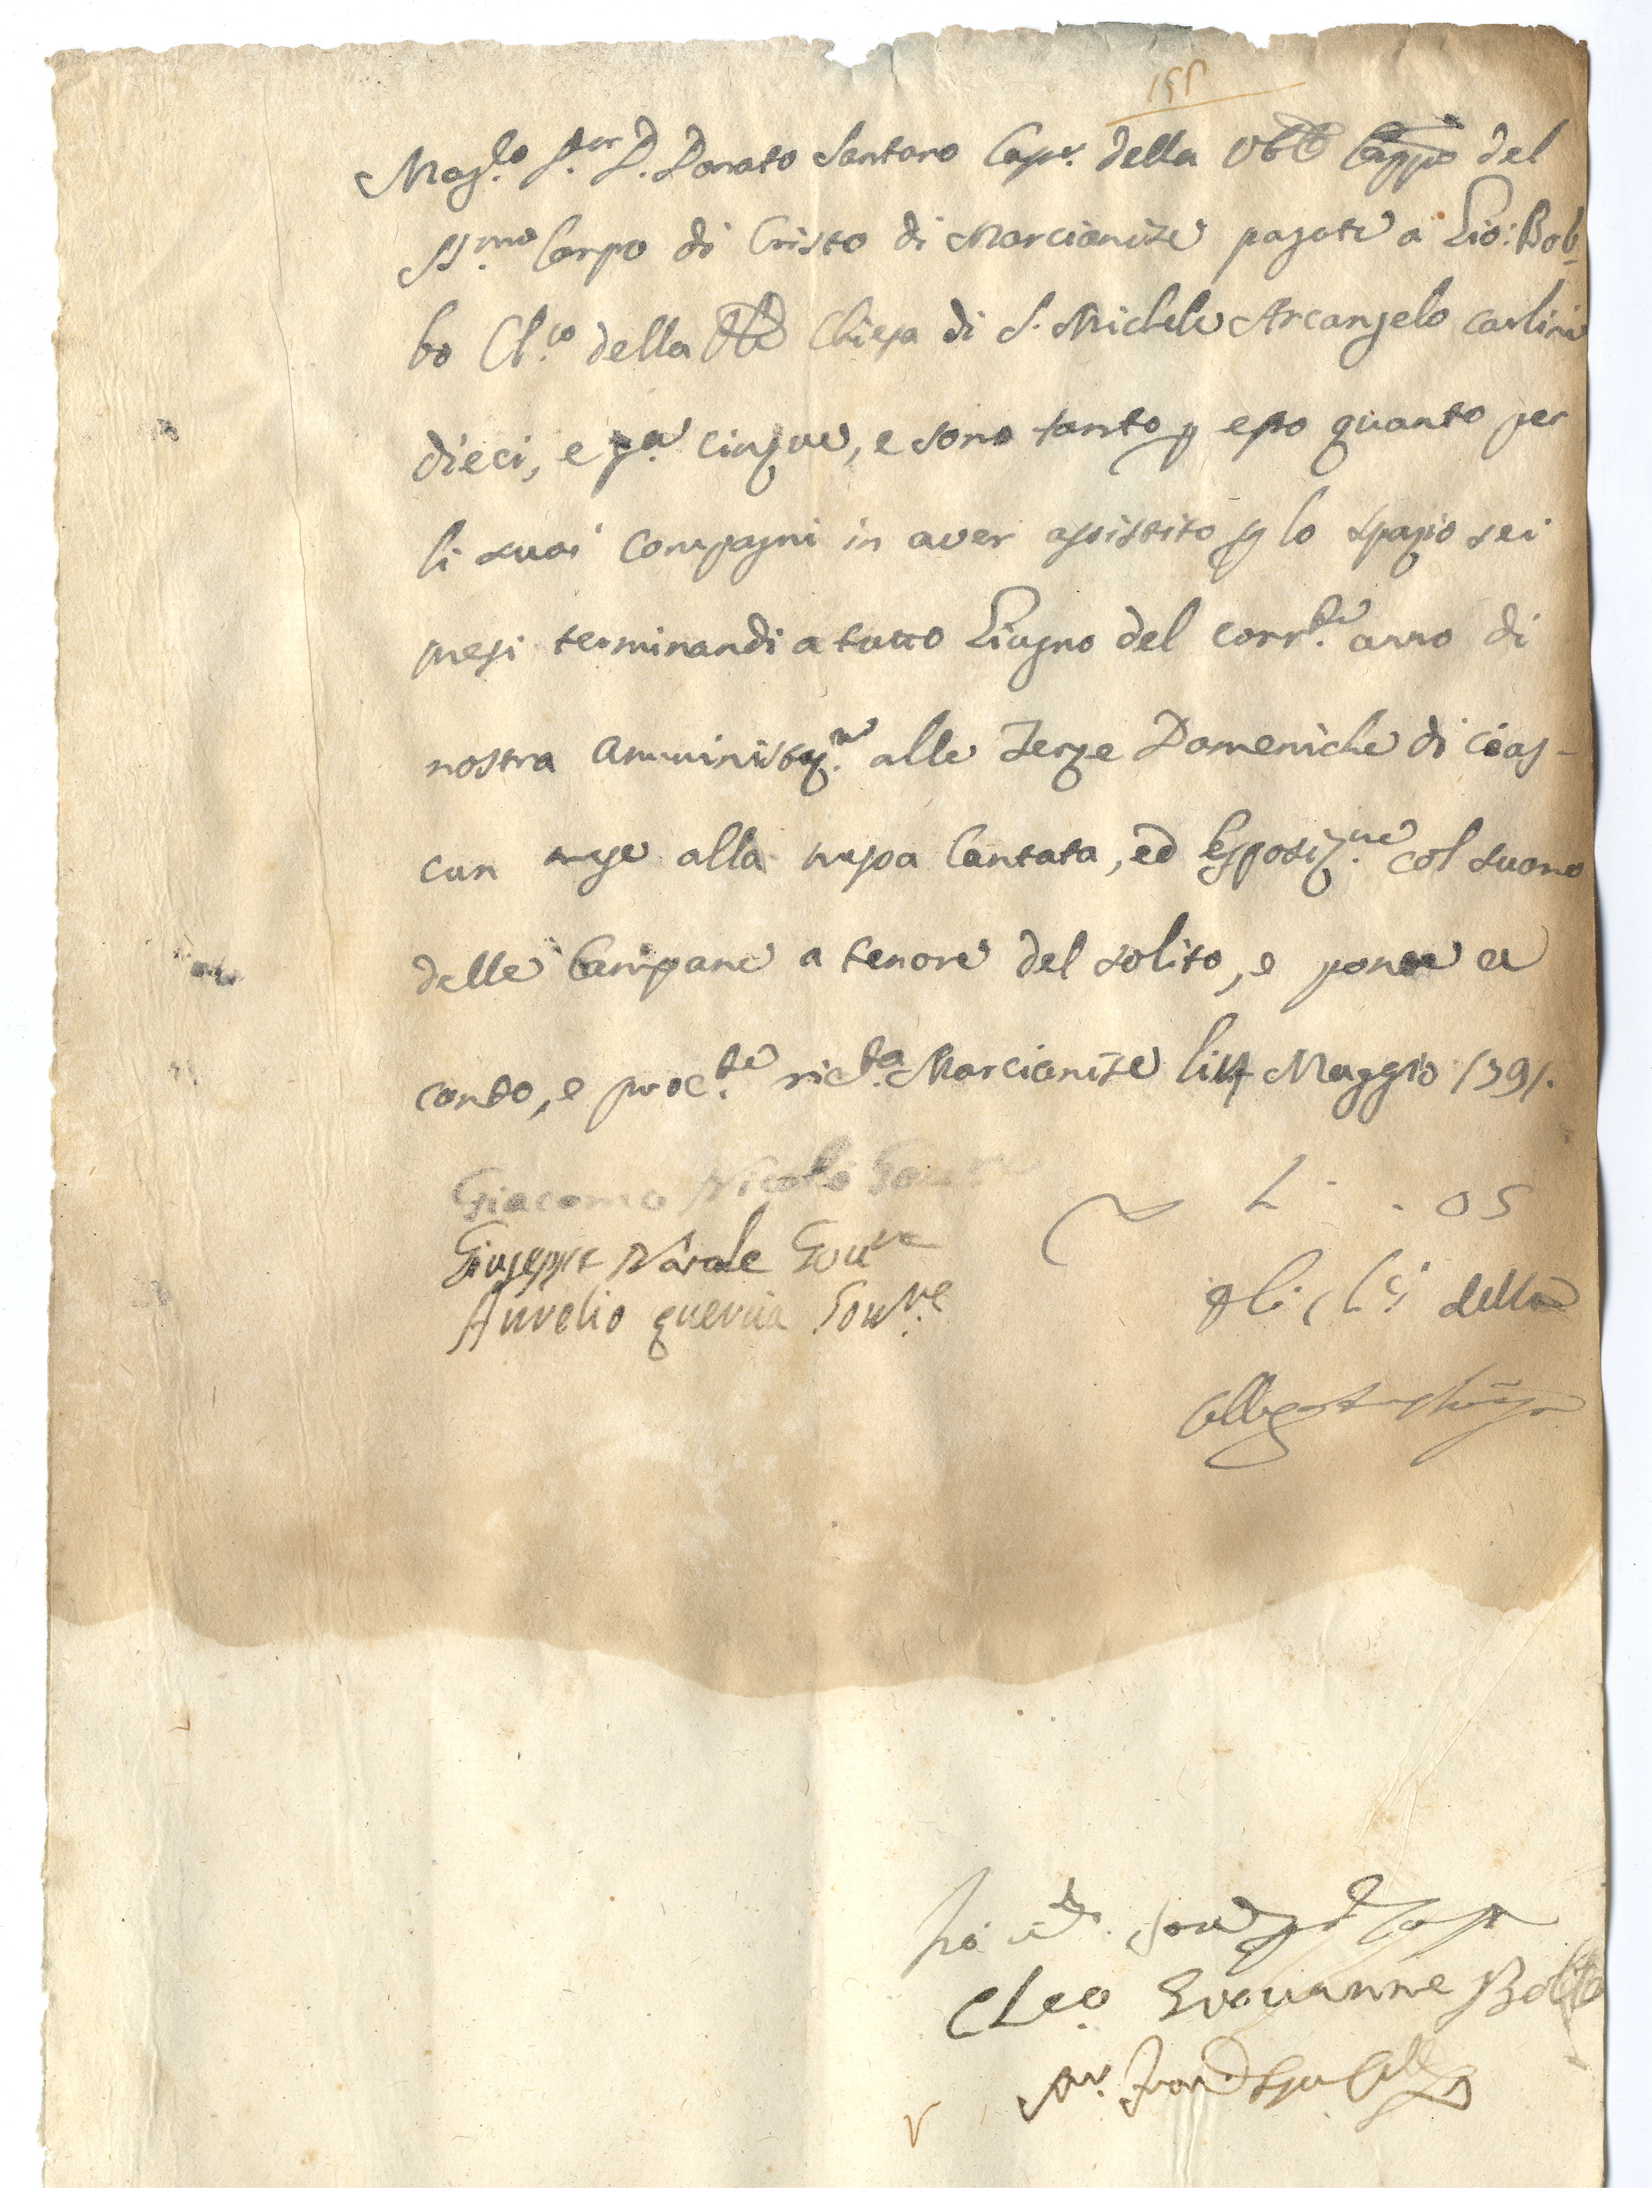 155
Mag.co S.or D. Donato Santoro Cap.e della Ven.le Capp.a del
SS.mo Corpo di Cristo di Marcianise pagate a Gio: Bob-
bo Cl.co della Chiesa di S. Michele Arcangelo carlini
dieci, e g.a cinque, e sono tanto p esso quanto per
li suoi Compagni in aver assistito p lo spazio sei
mesi terminandi a tutto Giugno del corr.te anno di
nostra Amministraz.ne alle Terze Domeniche di cias-
cun mese alla messa Cantata, ed Esposiz.ne col suono
delle Campane a tenore del solito, e ponete a
conto, e proc.te ric.ta Marcianise li 14 Maggio 1791.
Giacomo Nicolò Gou.re
Giuseppe Natale Gou.re
Aurelio quercia Gou.re
1 - . 05
gli Cl.ci della
Cl.co Giovanne Bobbo